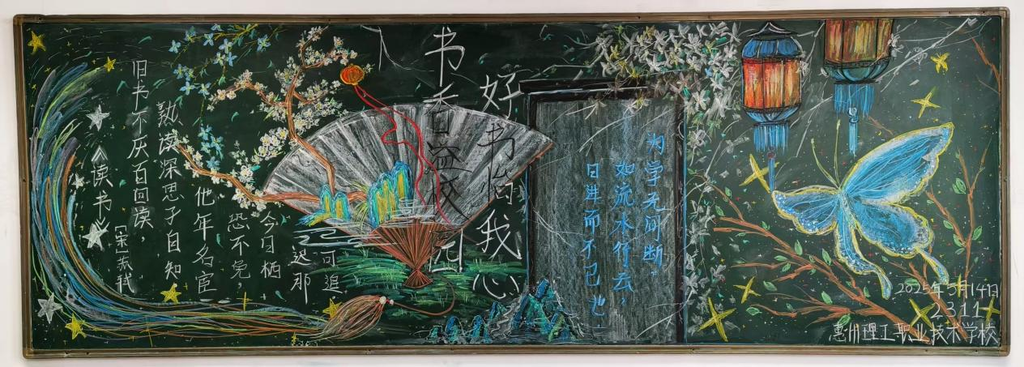 书香盈校园
好书怡我心
《读书》
[宋]苏轼
旧书不厌百回读，
熟读深思子自知
他年名宦
恐不免，
今日栖
迟那
可追
为学无间断，
如流水行云，
日进而不已也
2025年5月14日
2311
惠州理工职业技术学校